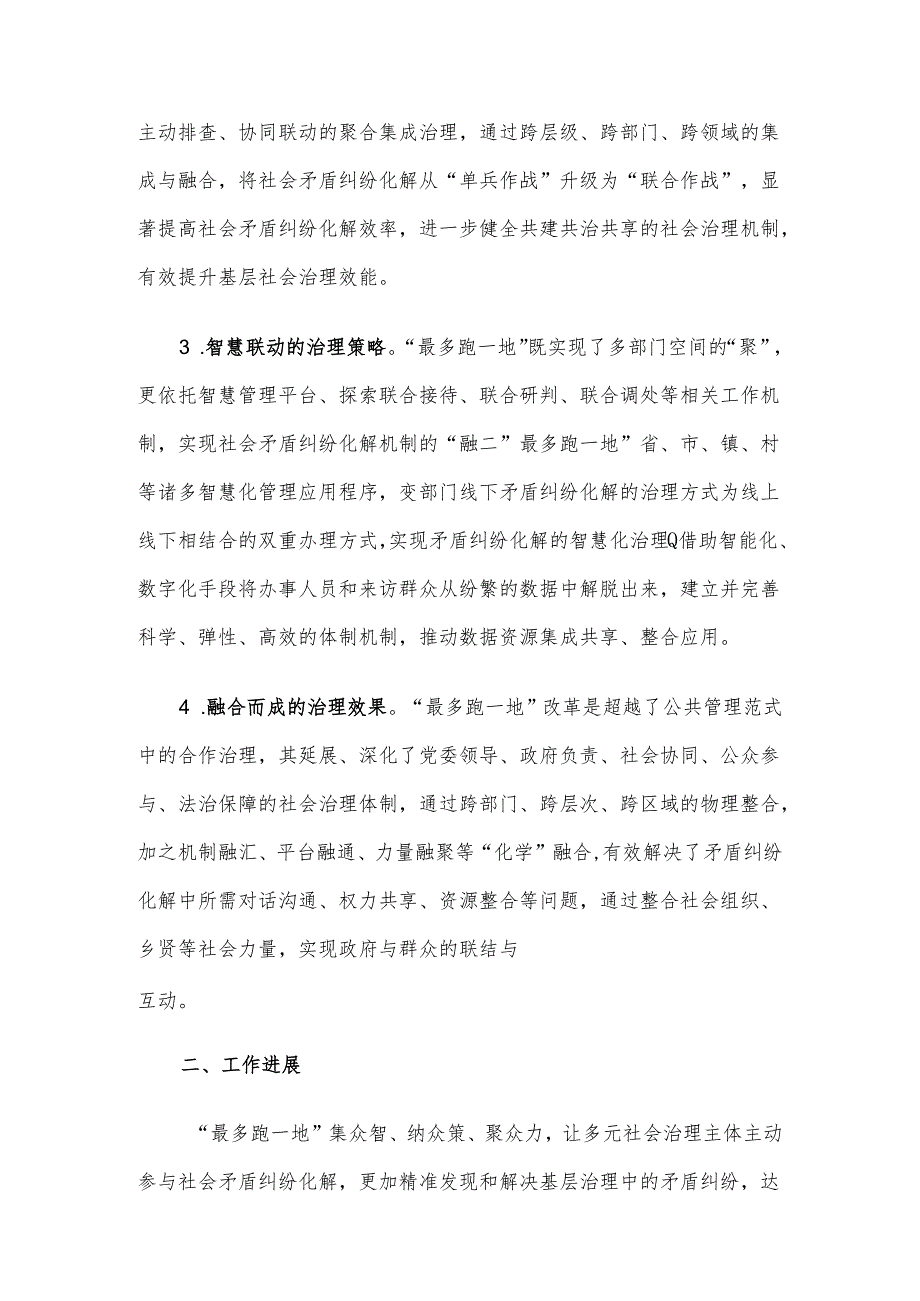 主动排查、协同联动的聚合集成治理，通过跨层级、跨部门、跨领域的集
成与融合，将社会矛盾纠纷化解从“单兵作战”升级为“联合作战”，显
著提高社会矛盾纠纷化解效率，进一步健全共建共治共享的社会治理机制，
有效提升基层社会治理效能。
3 .智慧联动的治理策略。“最多跑一地”既实现了多部门空间的“聚”，
更依托智慧管理平台、探索联合接待、联合研判、联合调处等相关工作机
制，实现社会矛盾纠纷化解机制的“融二”最多跑一地”省、市、镇、村
等诸多智慧化管理应用程序，变部门线下矛盾纠纷化解的治理方式为线上
线下相结合的双重办理方式,实现矛盾纠纷化解的智慧化治理Q借助智能化、
数字化手段将办事人员和来访群众从纷繁的数据中解脱出来，建立并完善
科学、弹性、高效的体制机制，推动数据资源集成共享、整合应用。
4 .融合而成的治理效果。“最多跑一地”改革是超越了公共管理范式
中的合作治理，其延展、深化了党委领导、政府负责、社会协同、公众参
与、法治保障的社会治理体制，通过跨部门、跨层次、跨区域的物理整合，
加之机制融汇、平台融通、力量融聚等“化学”融合,有效解决了矛盾纠纷
化解中所需对话沟通、权力共享、资源整合等问题，通过整合社会组织、
乡贤等社会力量，实现政府与群众的联结与
互动。
二、工作进展
“最多跑一地”集众智、纳众策、聚众力，让多元社会治理主体主动
参与社会矛盾纠纷化解，更加精准发现和解决基层治理中的矛盾纠纷，达